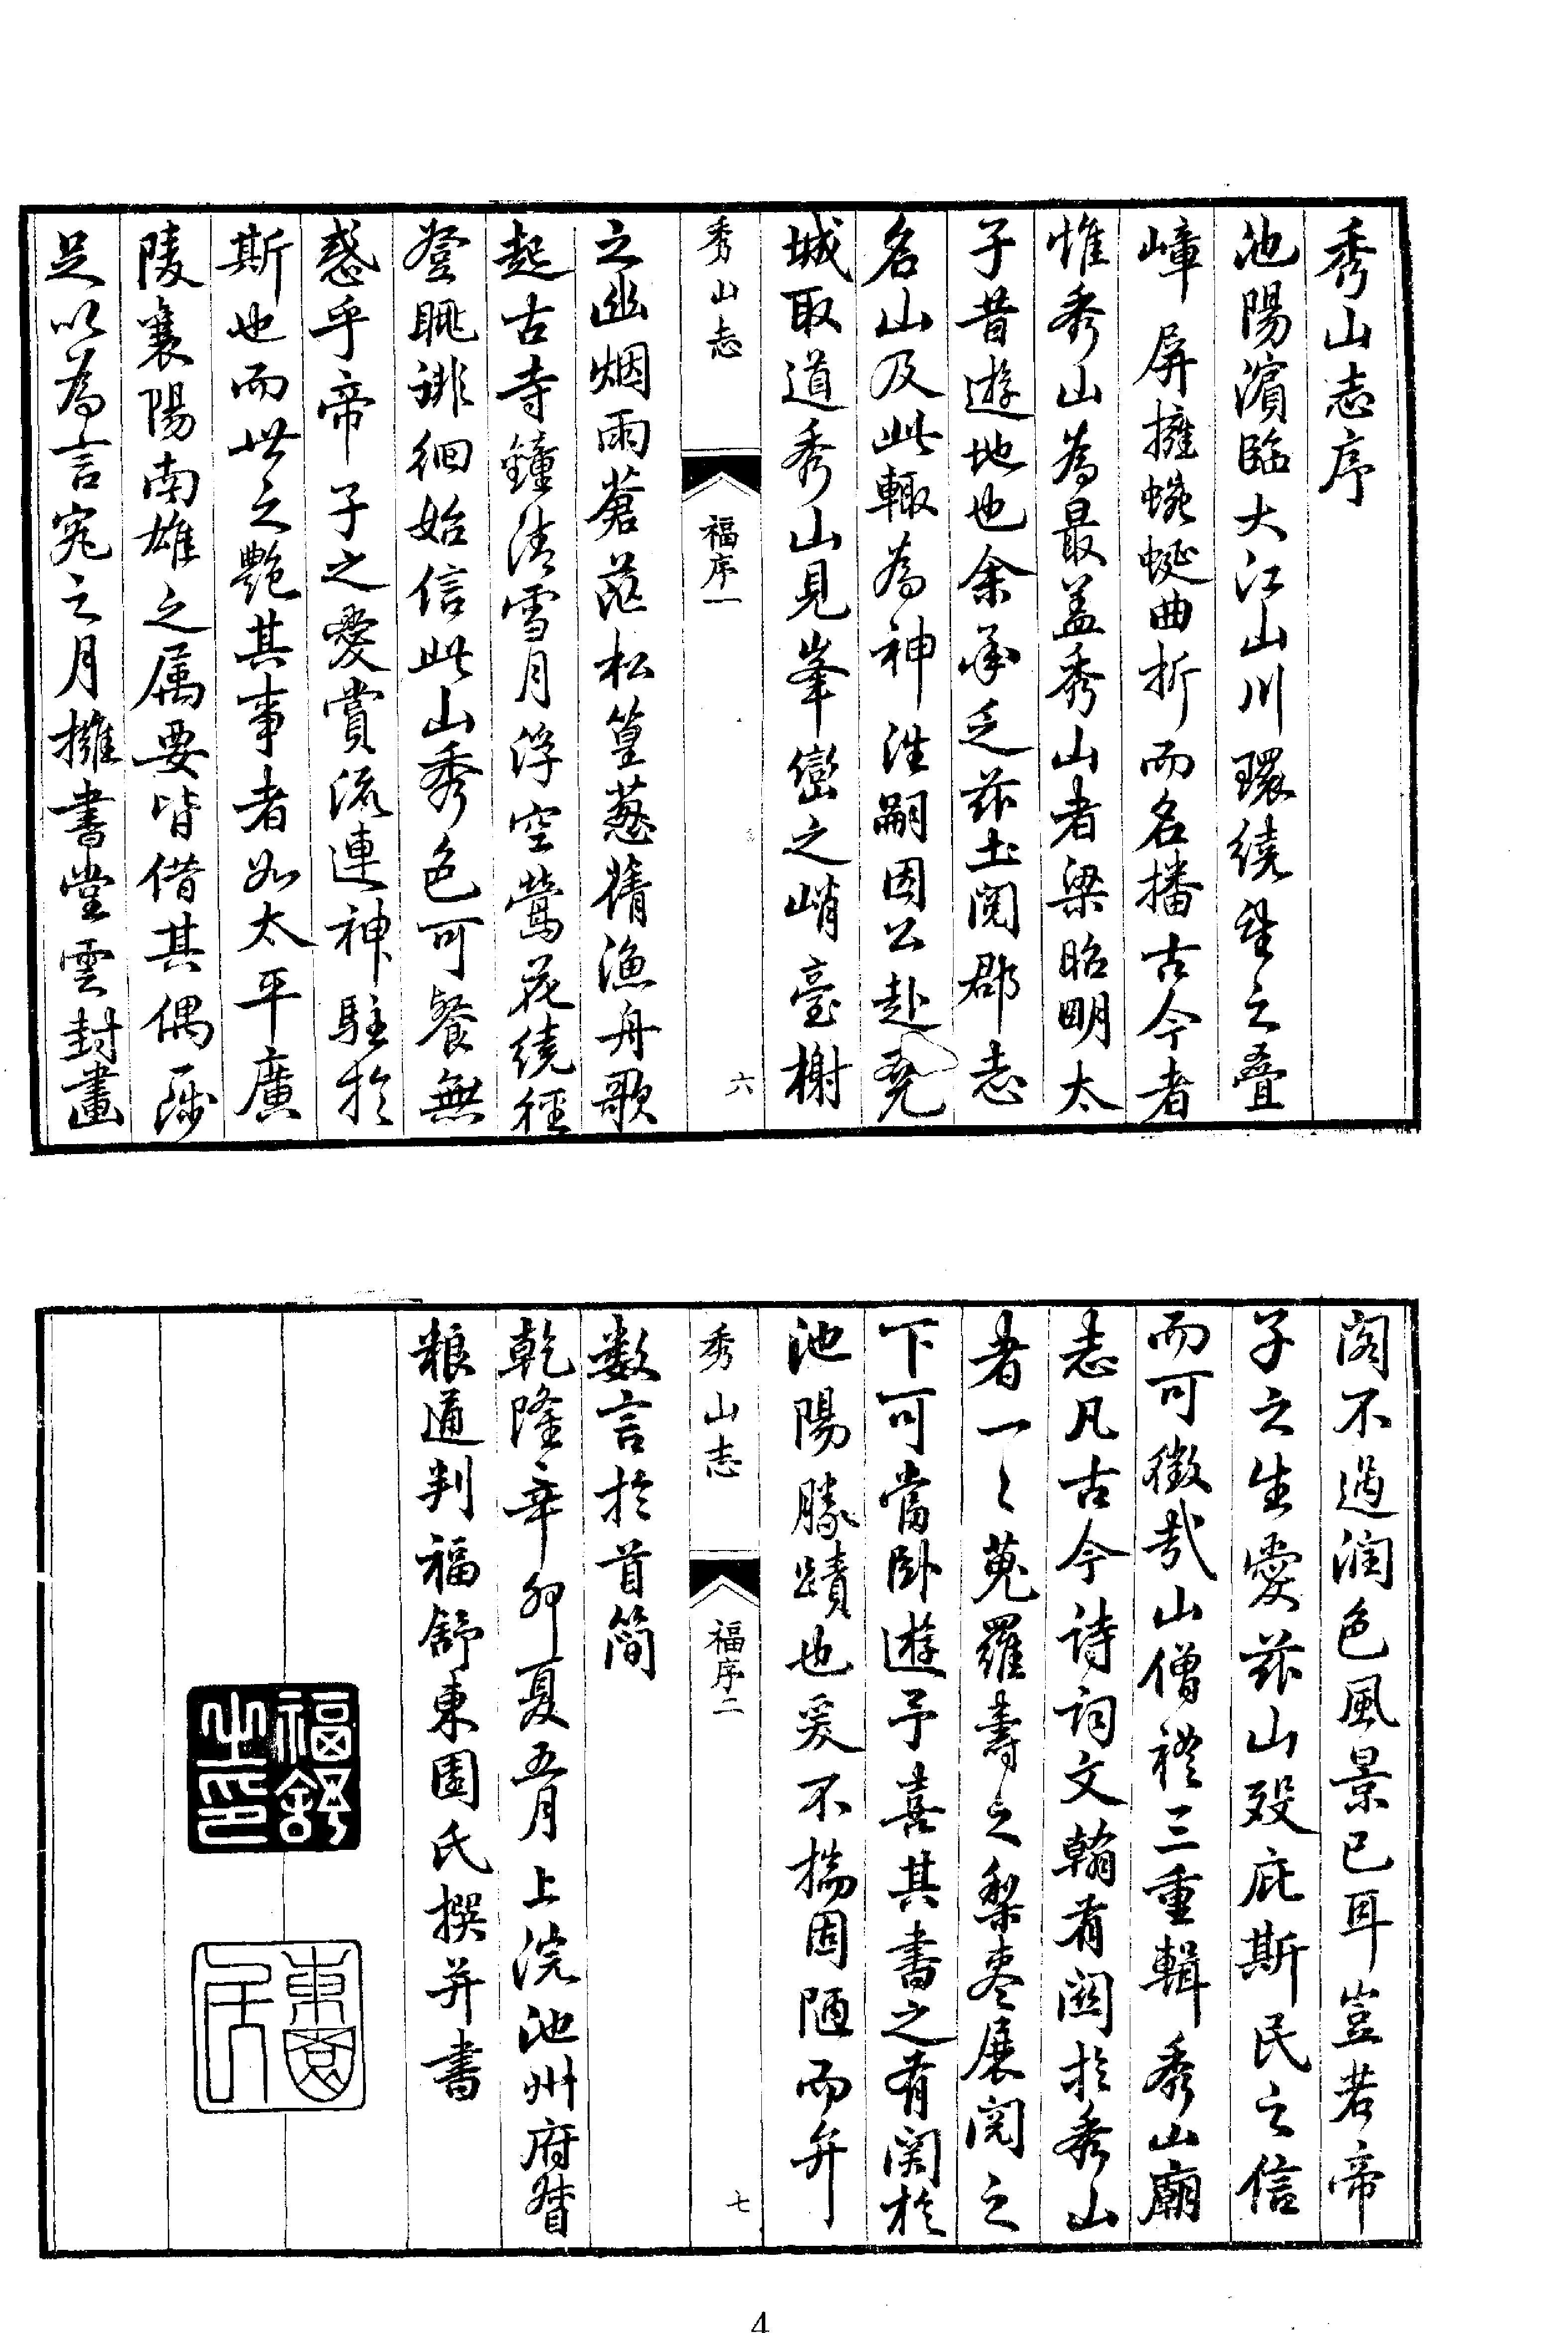 秀山志序
池陽濱臨大江山川環繞望之疊
嶂屏擁蜿蜒曲折而名播古今者
惟秀山為最蓋秀山者梁昭明太
子昔遊地也余承乏茲土閱郡志
名山及此輒為神往嗣因公赴堯
城取道秀山見峯巒之峭臺榭
秀山志
福序一
六
之幽烟雨蒼茫松篁葱蒨漁舟歌
起古寺鐘清雪月浮空鶯花繞徑
登眺徘徊始信此山秀色可餐無
惑乎帝子之愛賞流連神駐於
斯也而世之艷其事者如太平廣
陵襄陽南雄之属要皆借其偶跡
足以為言究之月擁書堂雲封畫
閣不過潤色風景已耳豈若帝
子之生愛茲山歿庇斯民之信
而可徵哉山僧禮三重輯秀山廟
志凡古今诗词文翰有関於秀山
者一〻蒐羅壽之梨枣展閱之
下可當卧遊予喜其書之有関於
池陽勝蹟也爰不揣固陋而弁
秀山志
福序二
七
数言於首简
乾隆辛卯夏五月上浣池州府督
粮通判福舒東園氏撰并書
福舒之印
東園氏
4